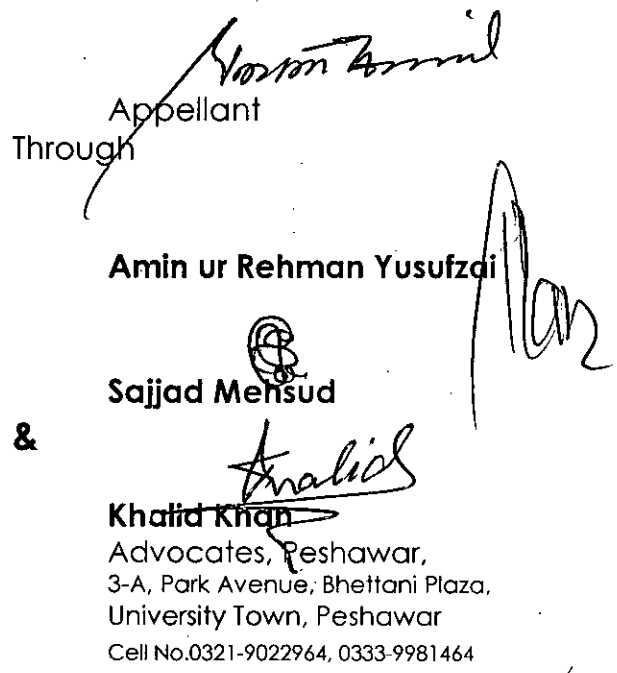 Appellant
Through
Amin ur Rehman Yusufzai
Sajjad Mehsud
&
Khalid
Khalid Khan
Advocates, Peshawar,
3-A, Park Avenue, Bhettani Plaza,
University Town, Peshawar
Cell No.0321-9022964, 0333-9981464